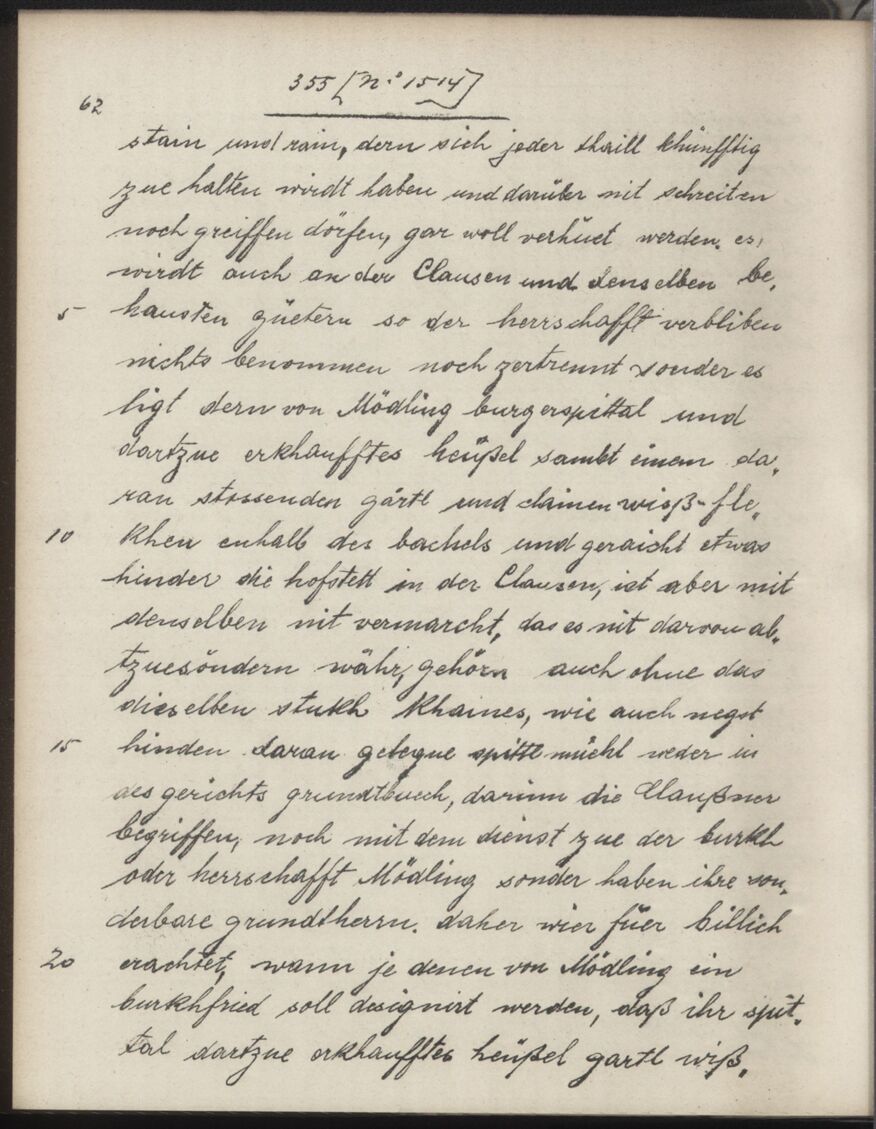 355 [N.o 1514]
62
stain und rain, dern sich jeder thaill khünfftig
zue halten wirdt haben und darüber nit schreiten
noch greiffen dörfen, gar woll verhüet werden. es
wirdt auch an der Clausen und denselben be„
5 hausten güetern so der herrschafft verbliben
nichts benommen noch zertrennt sonder es
ligt dern von Mödling burgerspittal und
dartzue erkhaufftes heüßel sambt einem da„
ran stossenden gärtl und clainen wisß-fle„
10 khen enhalb des bachels und geraicht etwas
hinder die hofstett in der Clausen, ist aber mit
denselben nit vermarcht, das es nit darvon ab„
tzuesöndern währ, gehörn auch ohne das
dieselben stukh khaines, wie auch negst
15 hinden daran gelegne spittlmühl weder in
des gerichts grundtbuech, darinn die Claußner
begriffen, noch mit dem dienst zue der burkh
oder herrschafft Mödling sonder haben ihre son„
derbare grundtherrn. daher wier füer billich
20 erachtet, wann je denen von Mödling ein
burkhfried soll designirt werden, daß ihr spit„
tal dartzue erkhaufftes heüßel gartl wiß„